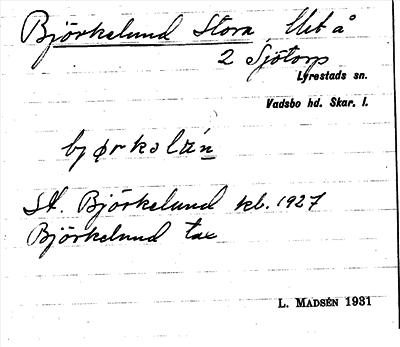 Björkelund Stora, Utå
2 Sjötorp
Lyrestads sn.
Vadsbo hd. Skar. l.
bjørkəlún
St. Björkelund kb. 1927
Björkelund tax
L. MADSÉN 1931